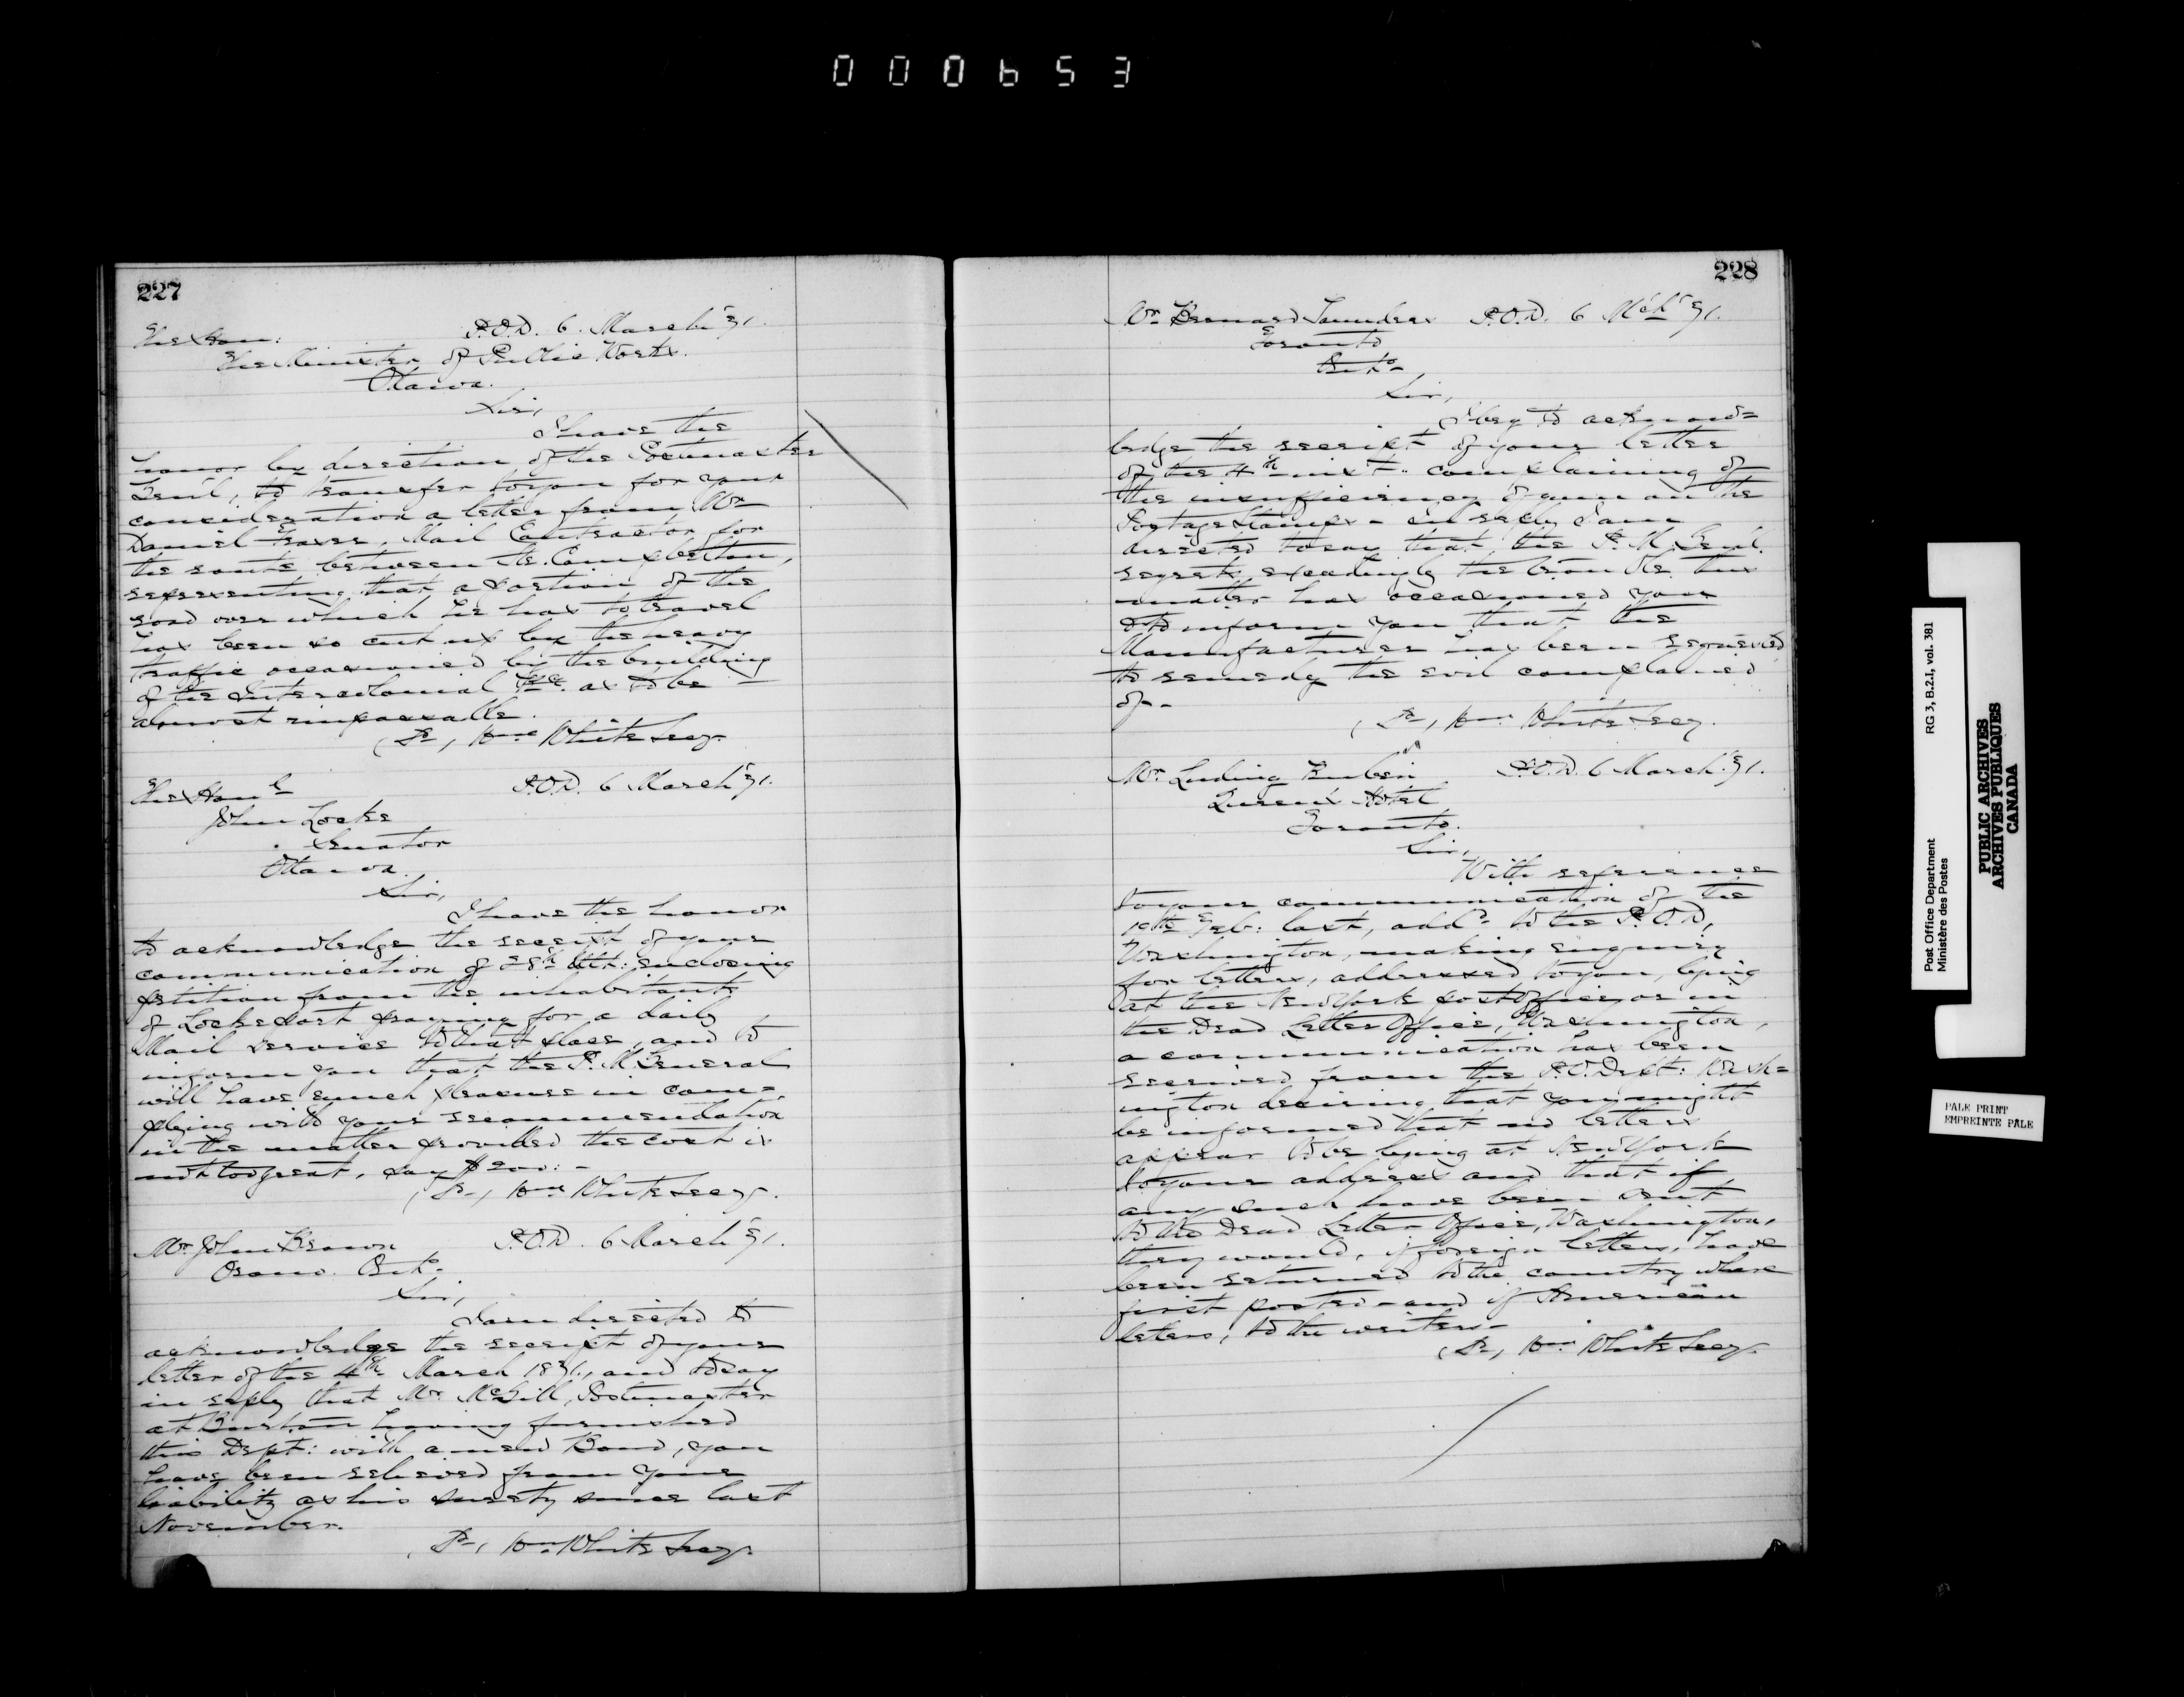 000653
227
The Hon: P.O.D. 6. March '71.
The Minister of Public Works.
Ottawa.
Sir,
I have the
honor by direction of the Postmaster
Gen'l, to transfer to you for your
consideration a letter from Mr
Daniel Fraser, Mail Contractor for
the route between &c. Campbellton,
representing that a portion of the
road over which he has to travel
has been so cut up by the heavy
traffic occasioned by the building
of the Intercolonial as to be
almost impassable.
(Sd, Wm White Secy.
The Honl P.O.D. 6 March '71.
John Locke
Senator
Ottawa.
Sir,
I have the honor
to acknowledge the receipt of your
communication of 28th ult: enclosing
petition from the inhabitants
of Lockeport praying for a daily
Mail service to that place, and to
inform you that the P.M. General
will have much pleasure in com=
plying with your recommendation
in the matter provided the cost is
not too great, say $200: -
(Sd, Wm White Secy.
Mr John Brown P.O.D. 6 March '71.
Orono. Onto.
Sir,
I am directed to
acknowledge the receipt of your
letter of the 4th March 1871., and to say
in reply that Mr. McGill, Postmaster
at having furnished
this Dept: with a new Bond, you
have been relieved from your
liability as his surety since last
November.
(Sd, Wm White Secy.
228
Mr Bernard Saunders P.O.D. 6 Mch '71.
Toronto
Onto
Sir,
I beg to acknow=
ledge the receipt of your letter
of the 4th inst. complaining of
the insufficiency of gum on the
Postage Stamps - In reply I am
directed to say that, the P.M. Genl.
regrets exceedingly the trouble this
matter has occasioned you
& to inform you that the
Manufacturer has been required
to remedy the evil complained
of -
(Sd, Wm White Secy.
Mr. Ludwig P.O.D. 6 March '71.
Queen's Hotel
Toronto.
Sir,
With reference
to your communication of the
Feb: last, addd to the P.O.D,
Washington, making enquiry
for letters, addressed to you, lying
at the New York post office or in
the Dead Letter Office, Washington,
a communication has been
received from the P.O. Dept: Wash=
ington desiring that you might
be informed that no letters
appear to be lying at New York
to your address and that if
any such have been sent
to the Dead Letter Office, Washington,
they would, if foreign letters, have
been returned to the country where
first posted - and if American
letters, to the writers -
(Sd, Wm White Secy.
Post Office Department RG 3, B.2.I, vol. 381
Ministère des Postes
PUBLIC ARCHIVES
ARCHIVES PUBLIQUES
CANADA
PALE PRINT
EMPREINTE PÂLE